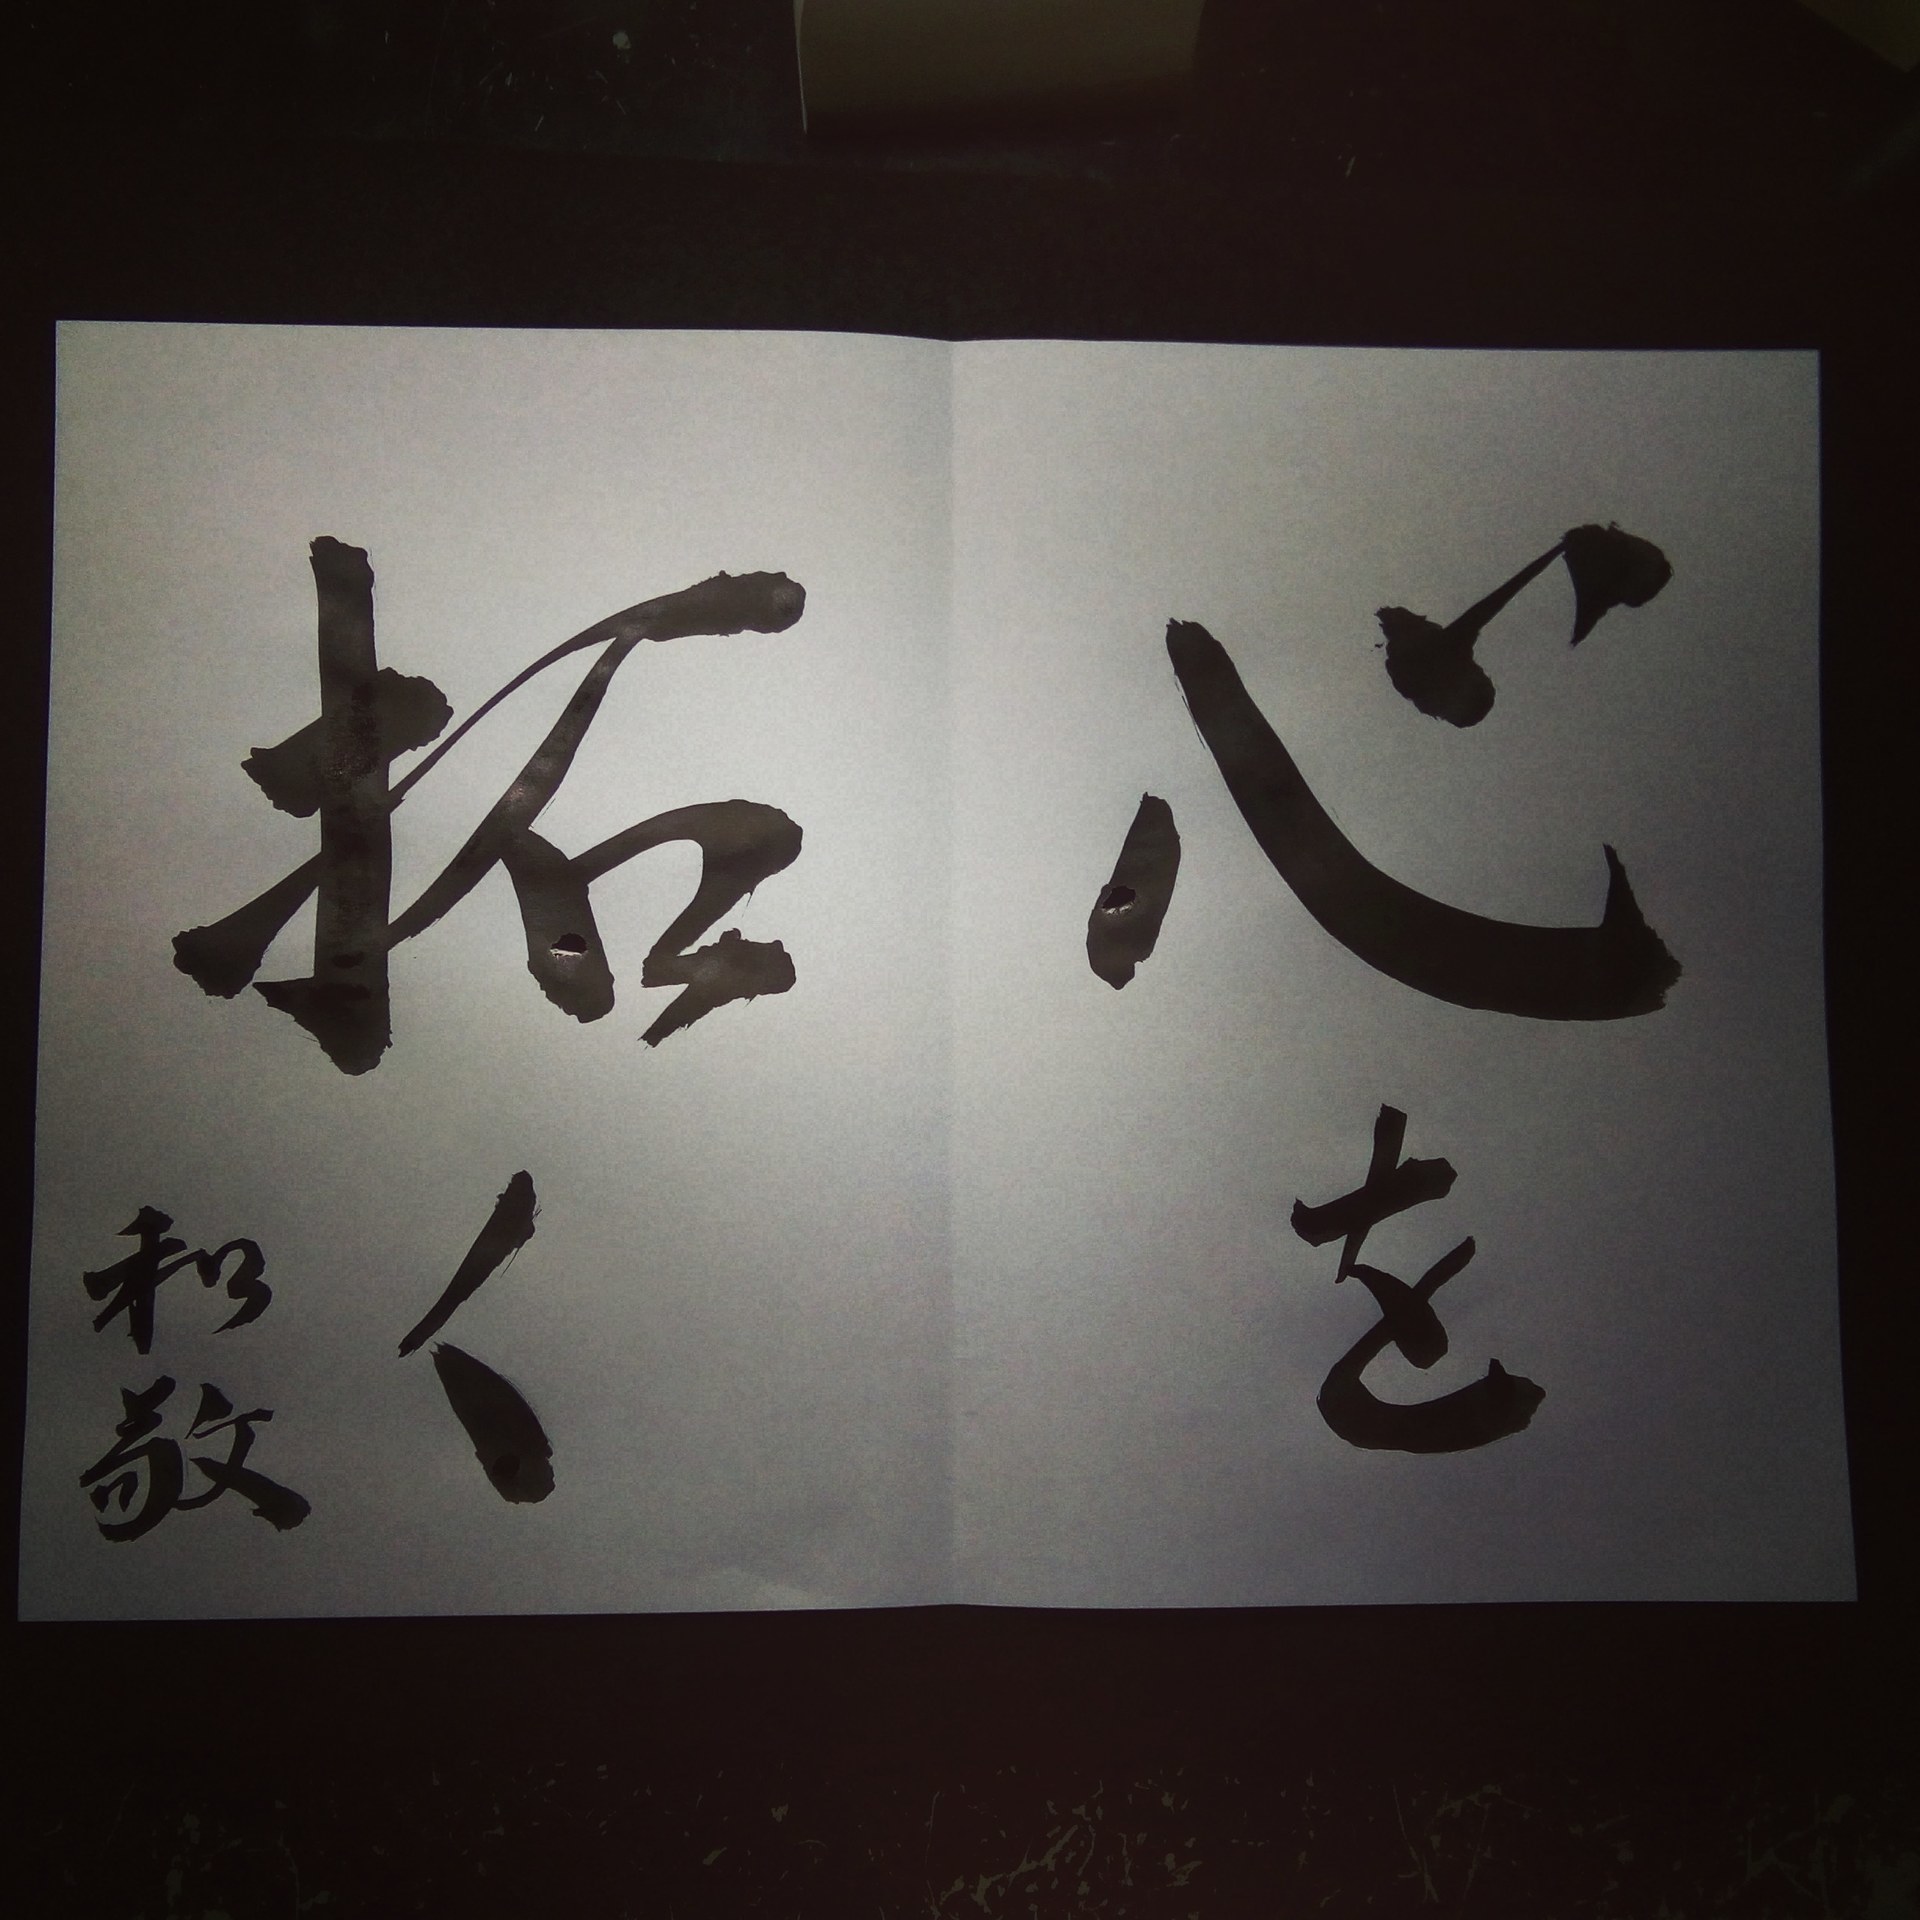 心を
拓く
和敬